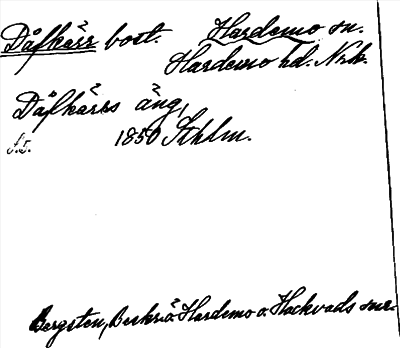 Dåfkärr bost. Hardemo sn.
Hardemo hd. Nrk.
Dåfkärrs äng,
S.5. 1850 Sthlm.
Bergsten, Beskr. ö. Hardemo o. Hackvads snr.